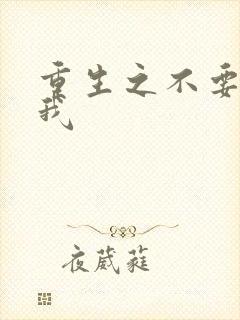 重生之不要
我
夜葳蕤